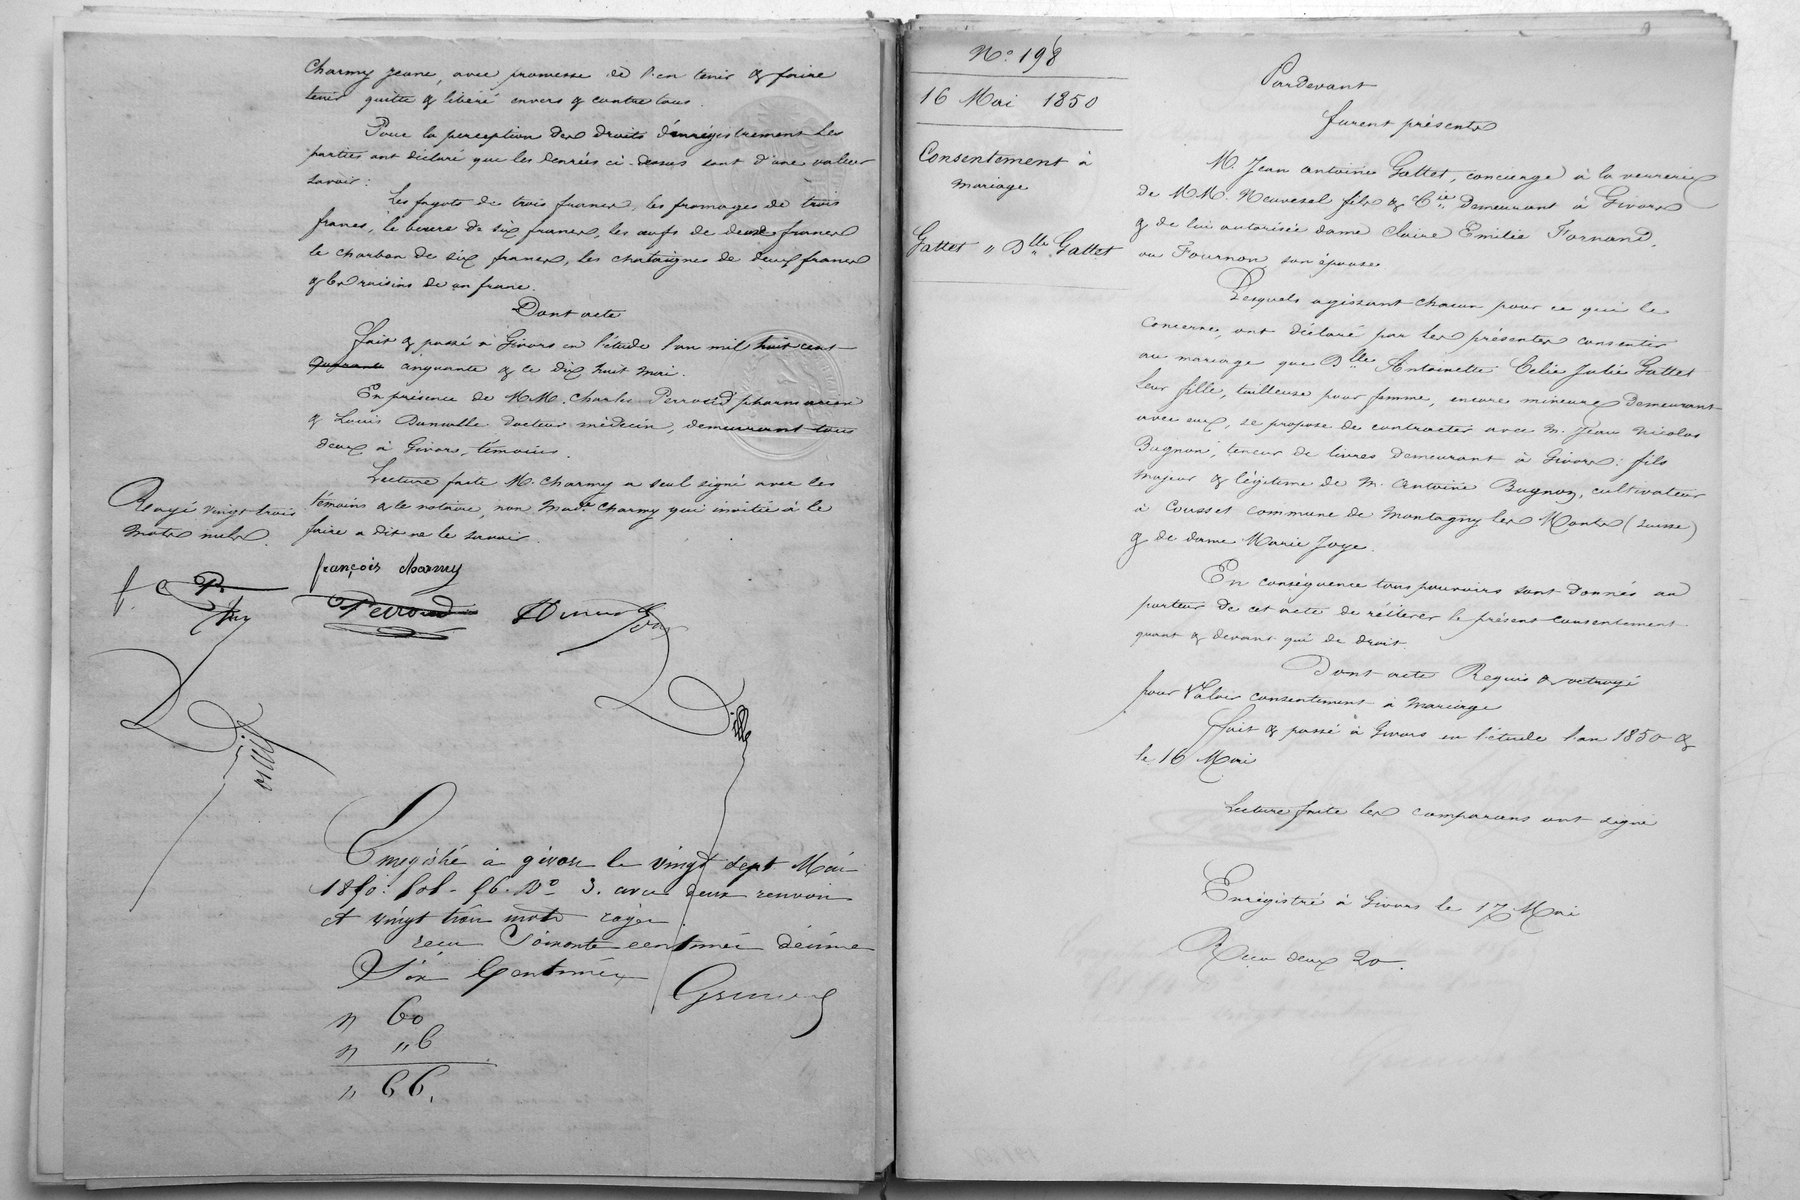 Charmy jeune, avec promesse de l'en tenir & faire
tenir quitte & libéré envers & contre tous.
Pour la perception des droits d'enregistrement les
parties ont déclaré que les denrées ci-dessus sont d'une valeur
savoir:
Les fagots de trois francs, les fromages de trois
francs, le beurre de six francs, les œufs de deux francs
le charbon de six francs, les chataignes de deux francs
& les raisins de un franc.
Dont acte
Fait & passé à Givors en l'étude l'an mil huit cent
quarante cinquante & ce dix huit mai.
En présence de MM. Charles Perroud pharmacien
& Louis docteur médecin, demeurant tous
deux à Givors, témoins.
Lecture faite M. Charmy a seul signé avec les
témoins & le notaire, non Made Charmy qui invitée à le
faire a dit ne le savoir.
Rayé vingt trois
mots nuls.
f. C P.
françois charmy
Perroud
Enregistré à givors le vingt sept Mai
1850. fol. 56. No 3. avec deux renvois
et vingt trois mots rayés
recu Soixante centimes décime
Six Centimes
" 60
" "6
" 66.
No. 198
16 Mai 1850
Consentement à
mariage
Gattet " Dlle Gattet
Pardevant
furent présents
M. Jean Antoine Gattet, concierge à la verrerie
de MM. Neuvesel fils & Cie demeurant à Givors
& de lui autorisée dame Claire Emilie Fornand,
ou Fournon son épouse
Lesquels agissant chacun pour ce qui le
concerne, ont déclaré par les présentes consentir
au mariage que Dlle Antoinette Celie Julie Gattet
leur fille, tailleuse pour femme, encore mineure demeurant
avec eux, se propose de contracter avec M. Jean Nicolas
Bugnon, teneur de livres demeurant à Givors: fils
majeur & légitime de M. Antoine Bugnon, cultivateur
à Cousset commune de Montagny les Monts (suisse)
& de dame Marie Joye.
En conséquence tous pouvoirs sont donnés au
porteur de cet acte de réitérer le présent consentement
quant & devant qui de droit.
Dont acte Requis & octroyé
pour Valoir consentement à mariage
Fait & passé à Givors en l'étude l'an 1850 &
le 16 Mai
Lecture faite les comparans ont signé
Enregistré à Givors le 17 Mai
Reçu deux 20.